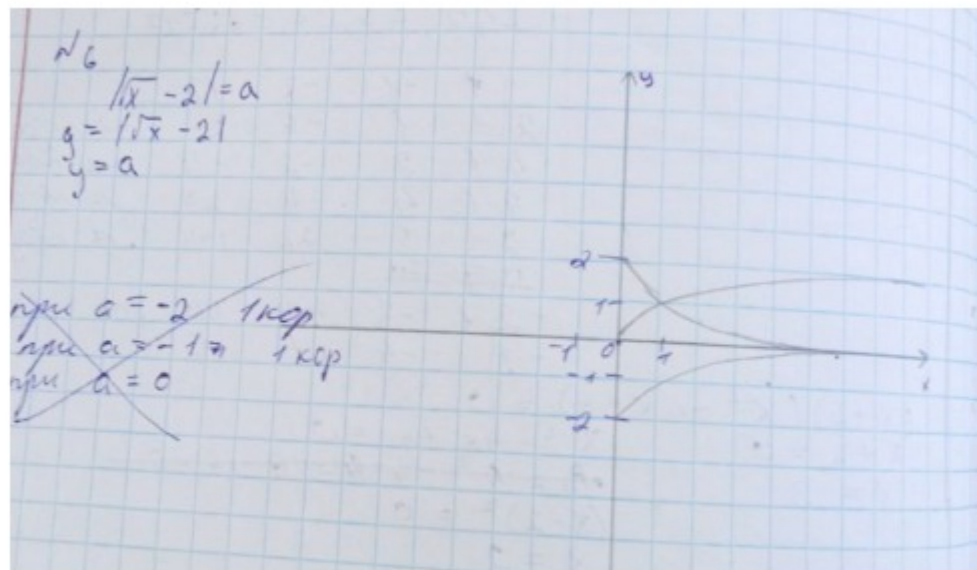 №6
|√x - 2| = a
y = |√x - 2|
y = a
при a = -2 1 кор
при a = -1 1 кор
при a = 0
y
2
1
-1 0 1
-1
-2
x